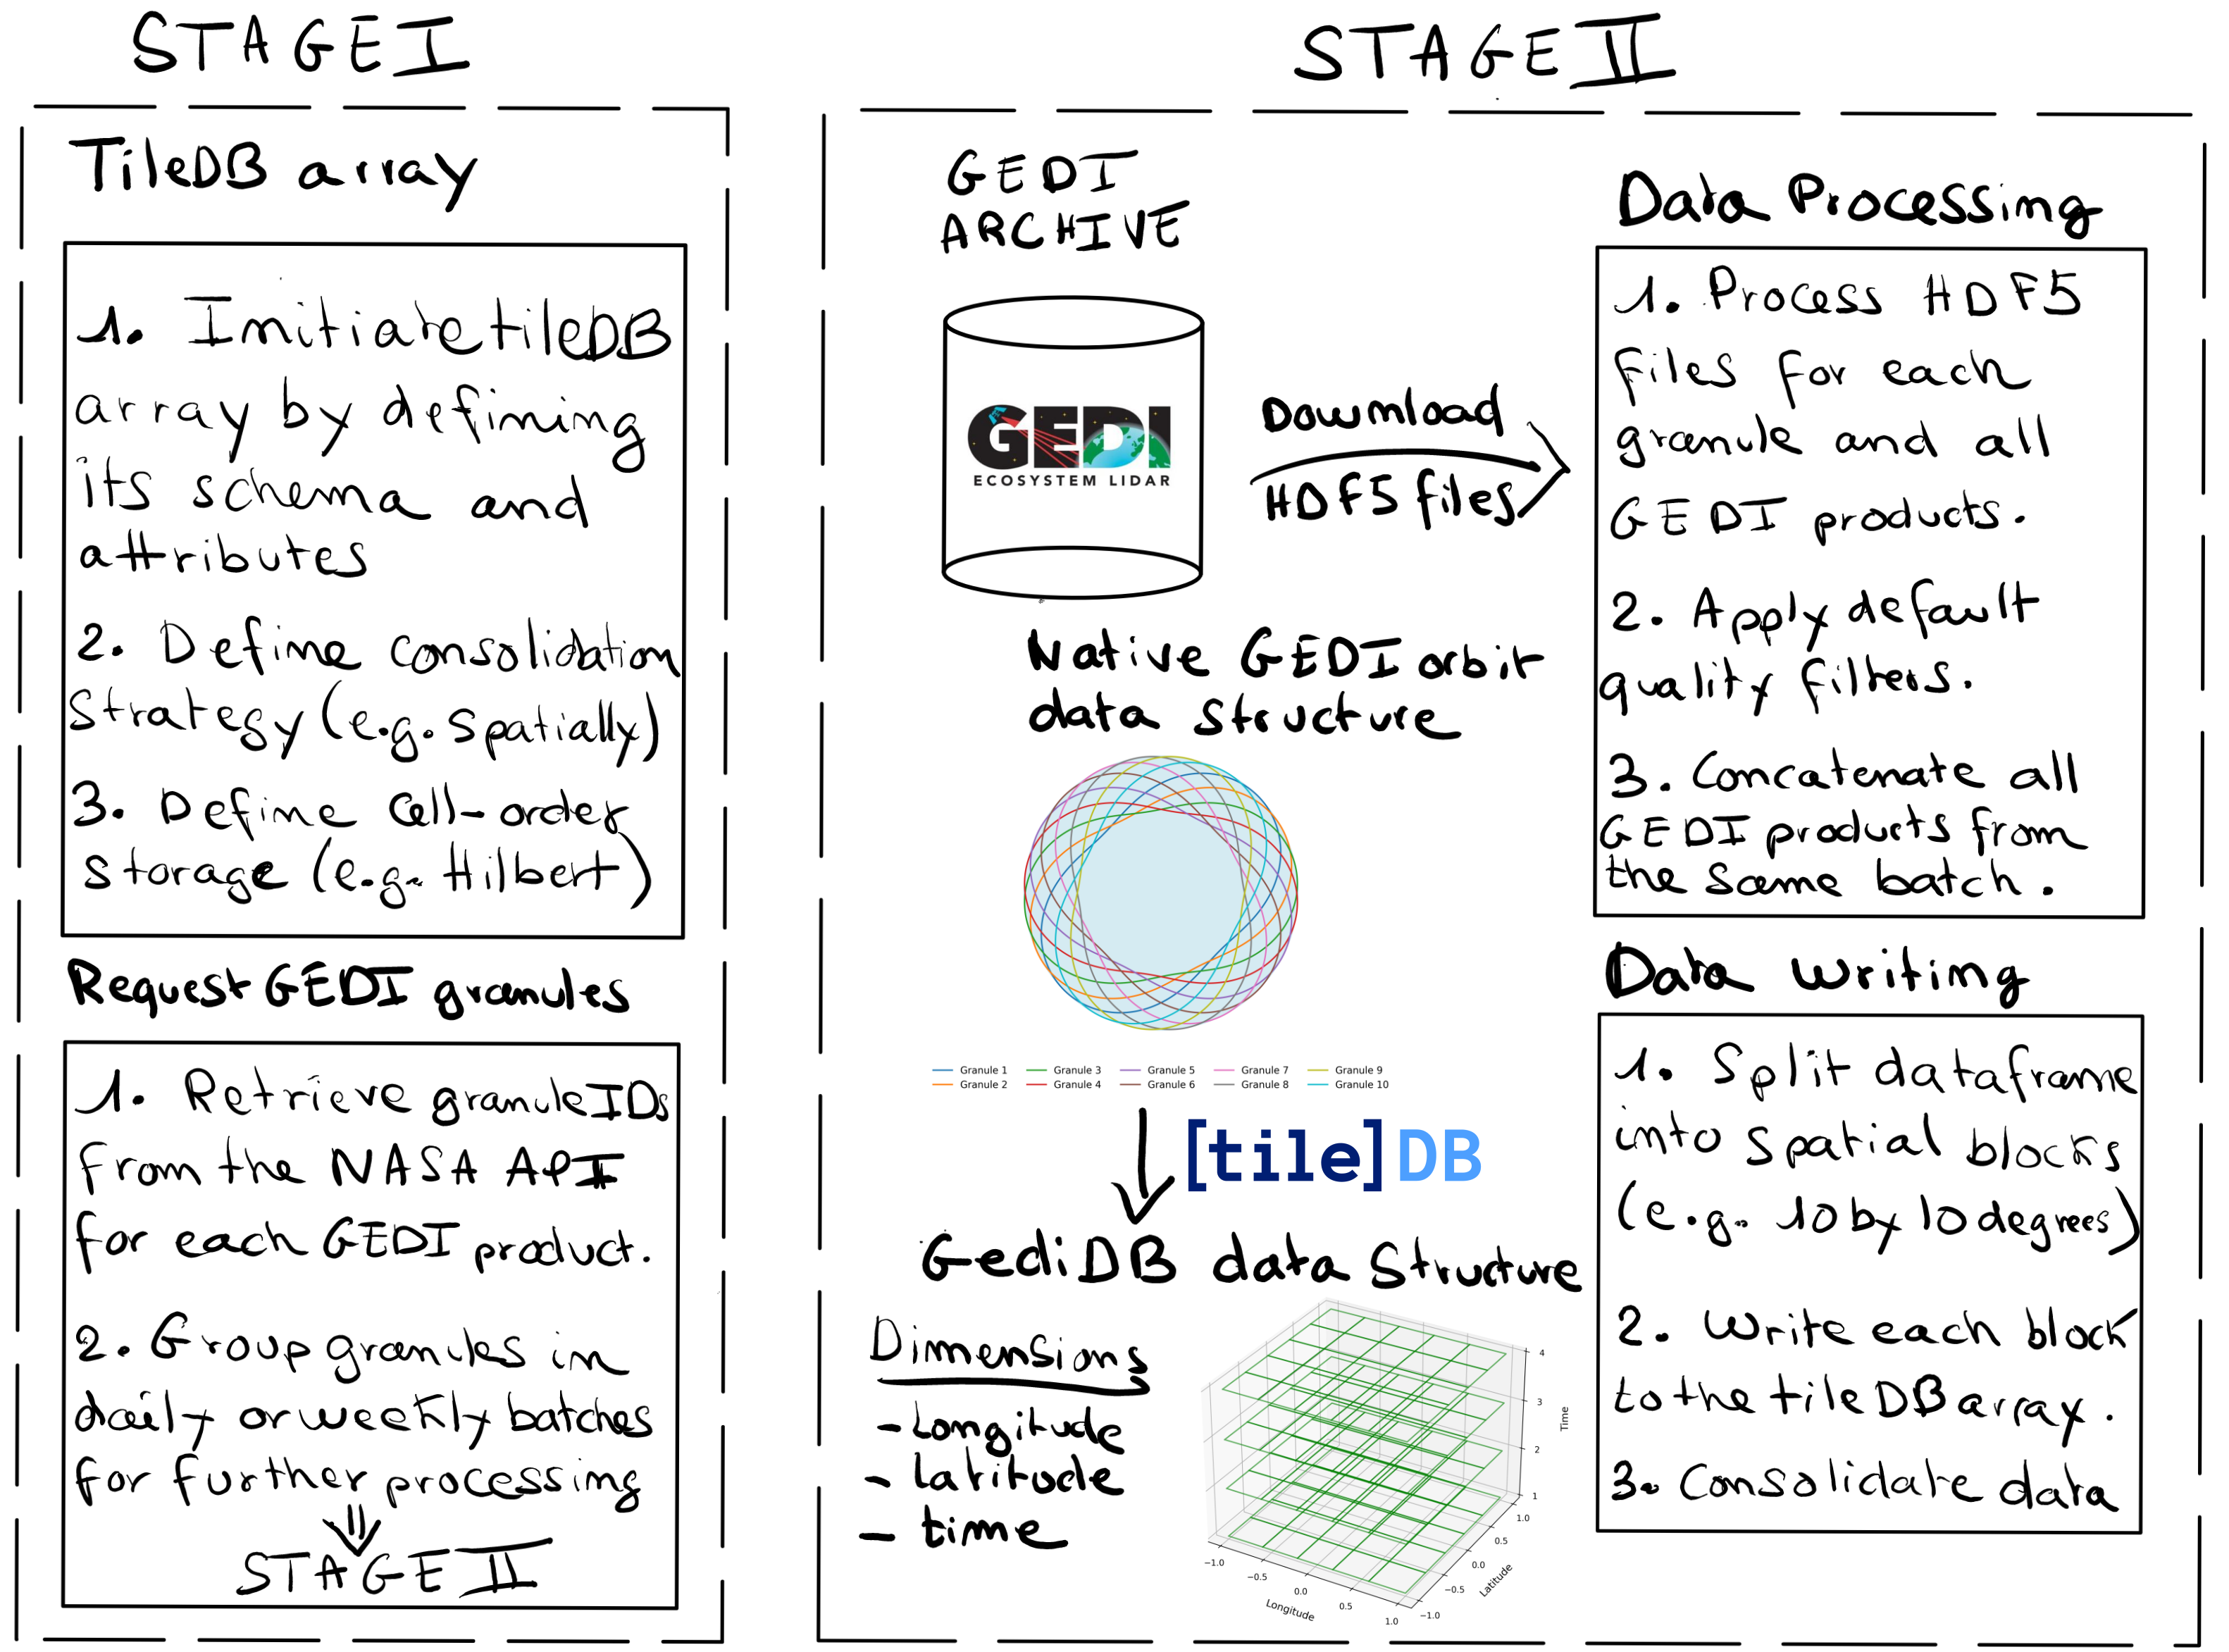 STAGE I
TileDB array
1. Initiate tileDB
array by defining
its schema and
attributes
2. Define consolidation
strategy (e.g. spatially)
3. Define cell-order
storage (e.g. Hilbert)
Request GEDI granules
1. Retrieve granule IDs
from the NASA API
for each GEDI product.
2. Group granules in
daily or weekly batches
for further processing
STAGE II
STAGE II
GEDI
ARCHIVE
GEDI
ECOSYSTEM LIDAR
Download
HDF5 files
Native GEDI orbit
data structure
Granule 1
Granule 2
Granule 3
Granule 4
Granule 5
Granule 6
Granule 7
Granule 8
Granule 9
Granule 10
[tile]DB
GediDB data structure
Dimensions
- longitude
- latitude
- time
4
3
2
1
Time
1.0
0.5
0.0
−0.5
−1.0
Latitude
−1.0
−0.5
0.0
0.5
1.0
Longitude
Data Processing
1. Process HDF5
files for each
granule and all
GEDI products.
2. Apply default
quality filters.
3. Concatenate all
GEDI products from
the same batch.
Data writing
1. Split dataframe
into spatial blocks
(e.g. 10 by 10 degrees)
2. Write each block
to the tileDB array.
3. Consolidate data